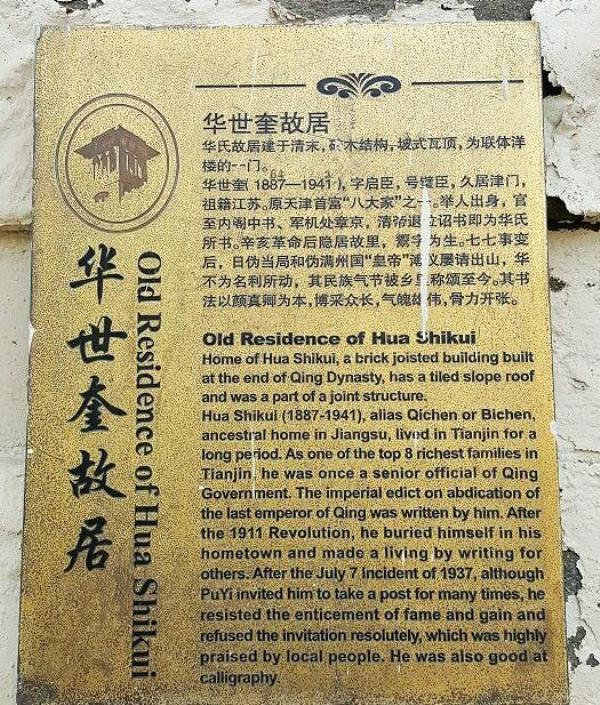 华世奎故居
Old Residence of Hua Shikui
华世奎故居
华氏故居建于清末，砖木结构，坡式瓦顶，为联体洋
楼的--门。
华世奎（1887—1941），字启臣，号璧臣，久居津门，
祖籍江苏，原天津首富“八大家”之一。举人出身，官
至内阁中书、军机处章京，清帝退位诏书即为华氏
所书。辛亥革命后隐居故里，鬻字为生。七七事变
后，日伪当局和伪满州国“皇帝”溥仪屡请出山，华
不为名利所动，其民族气节被乡里称颂至今。其书
法以颜真卿为本，博采众长，气魄雄伟，骨力开张。
Old Residence of Hua Shikui
Home of Hua Shikui, a brick joisted building built
at the end of Qing Dynasty, has a tiled slope roof
and was a part of a joint structure.
Hua Shikui (1887-1941), alias Qichen or Bichen,
ancestral home in Jiangsu, lived in Tianjin for a
long period. As one of the top 8 richest families in
Tianjin, he was once a senior official of Qing
Government. The imperial edict on abdication of
the last emperor of Qing was written by him. After
the 1911 Revolution, he buried himself in his
hometown and made a living by writing for
others. After the July 7 Incident of 1937, although
PuYi invited him to take a post for many times, he
resisted the enticement of fame and gain and
refused the invitation resolutely, which was highly
praised by local people. He was also good at
calligraphy.